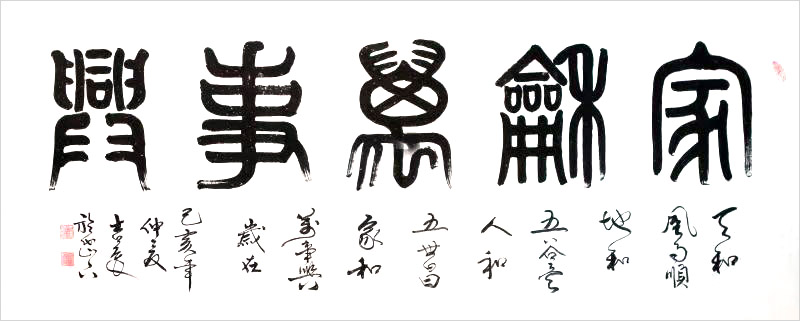 家龢萬事興
天和
風雨順
地和
五谷
人和
五世昌
家和
萬事興
歲在
己亥年
仲夏